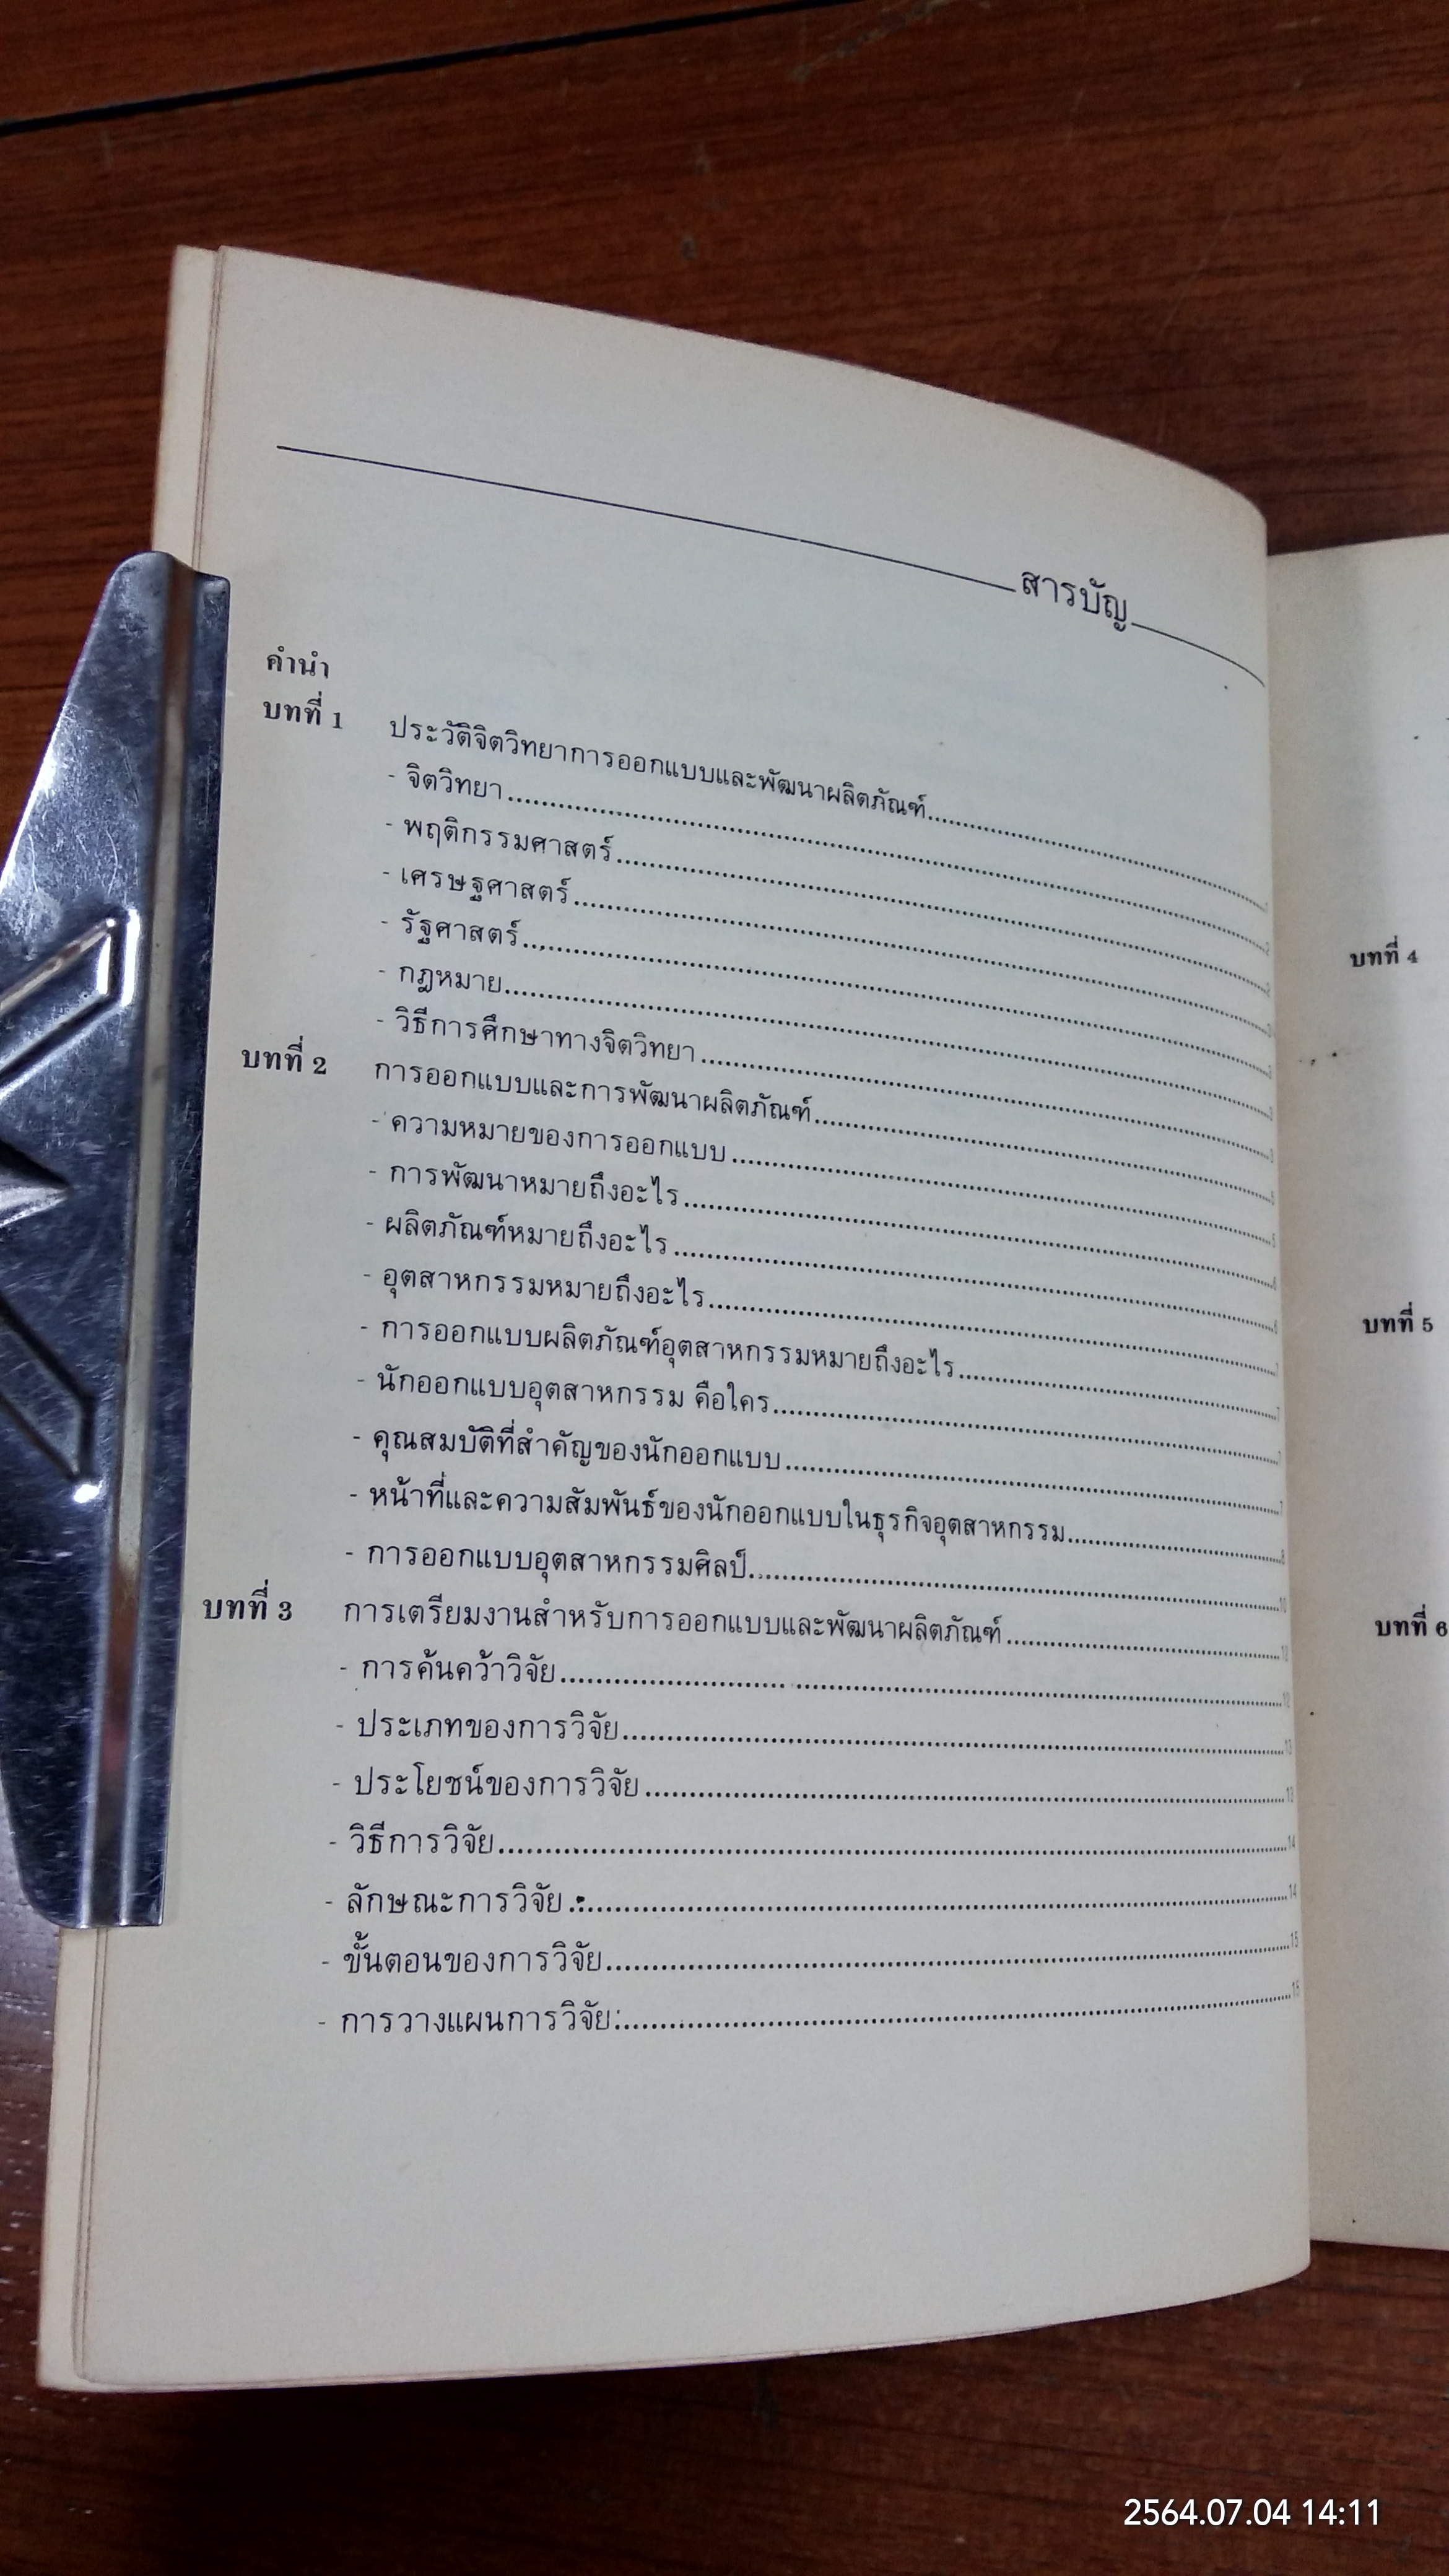 สารบัญ
คำนำ
บทที่ 1 ประวัติจิตวิทยาการออกแบบและพัฒนาผลิตภัณฑ์
- จิตวิทยา
- พฤติกรรมศาสตร์
- เศรษฐศาสตร์
- รัฐศาสตร์
- กฎหมาย
- วิธีการศึกษาทางจิตวิทยา
บทที่ 2 การออกแบบและการพัฒนาผลิตภัณฑ์
- ความหมายของการออกแบบ
- การพัฒนาหมายถึงอะไร
- ผลิตภัณฑ์หมายถึงอะไร
- อุตสาหกรรมหมายถึงอะไร
- การออกแบบผลิตภัณฑ์อุตสาหกรรมหมายถึงอะไร
- นักออกแบบอุตสาหกรรม คือใคร
- คุณสมบัติที่สำคัญของนักออกแบบ
- หน้าที่และความสัมพันธ์ของนักออกแบบในธุรกิจอุตสาหกรรม
- การออกแบบอุตสาหกรรมศิลป์
บทที่ 3 การเตรียมงานสำหรับการออกแบบและพัฒนาผลิตภัณฑ์
- การค้นคว้าวิจัย
- ประเภทของการวิจัย
- ประโยชน์ของการวิจัย
- วิธีการวิจัย 14
- ลักษณะการวิจัย 14
- ขั้นตอนของการวิจัย 15
- การวางแผนการวิจัย
บทที่ 4
บทที่ 5
บทที่ 6
2564.07.04 14:11